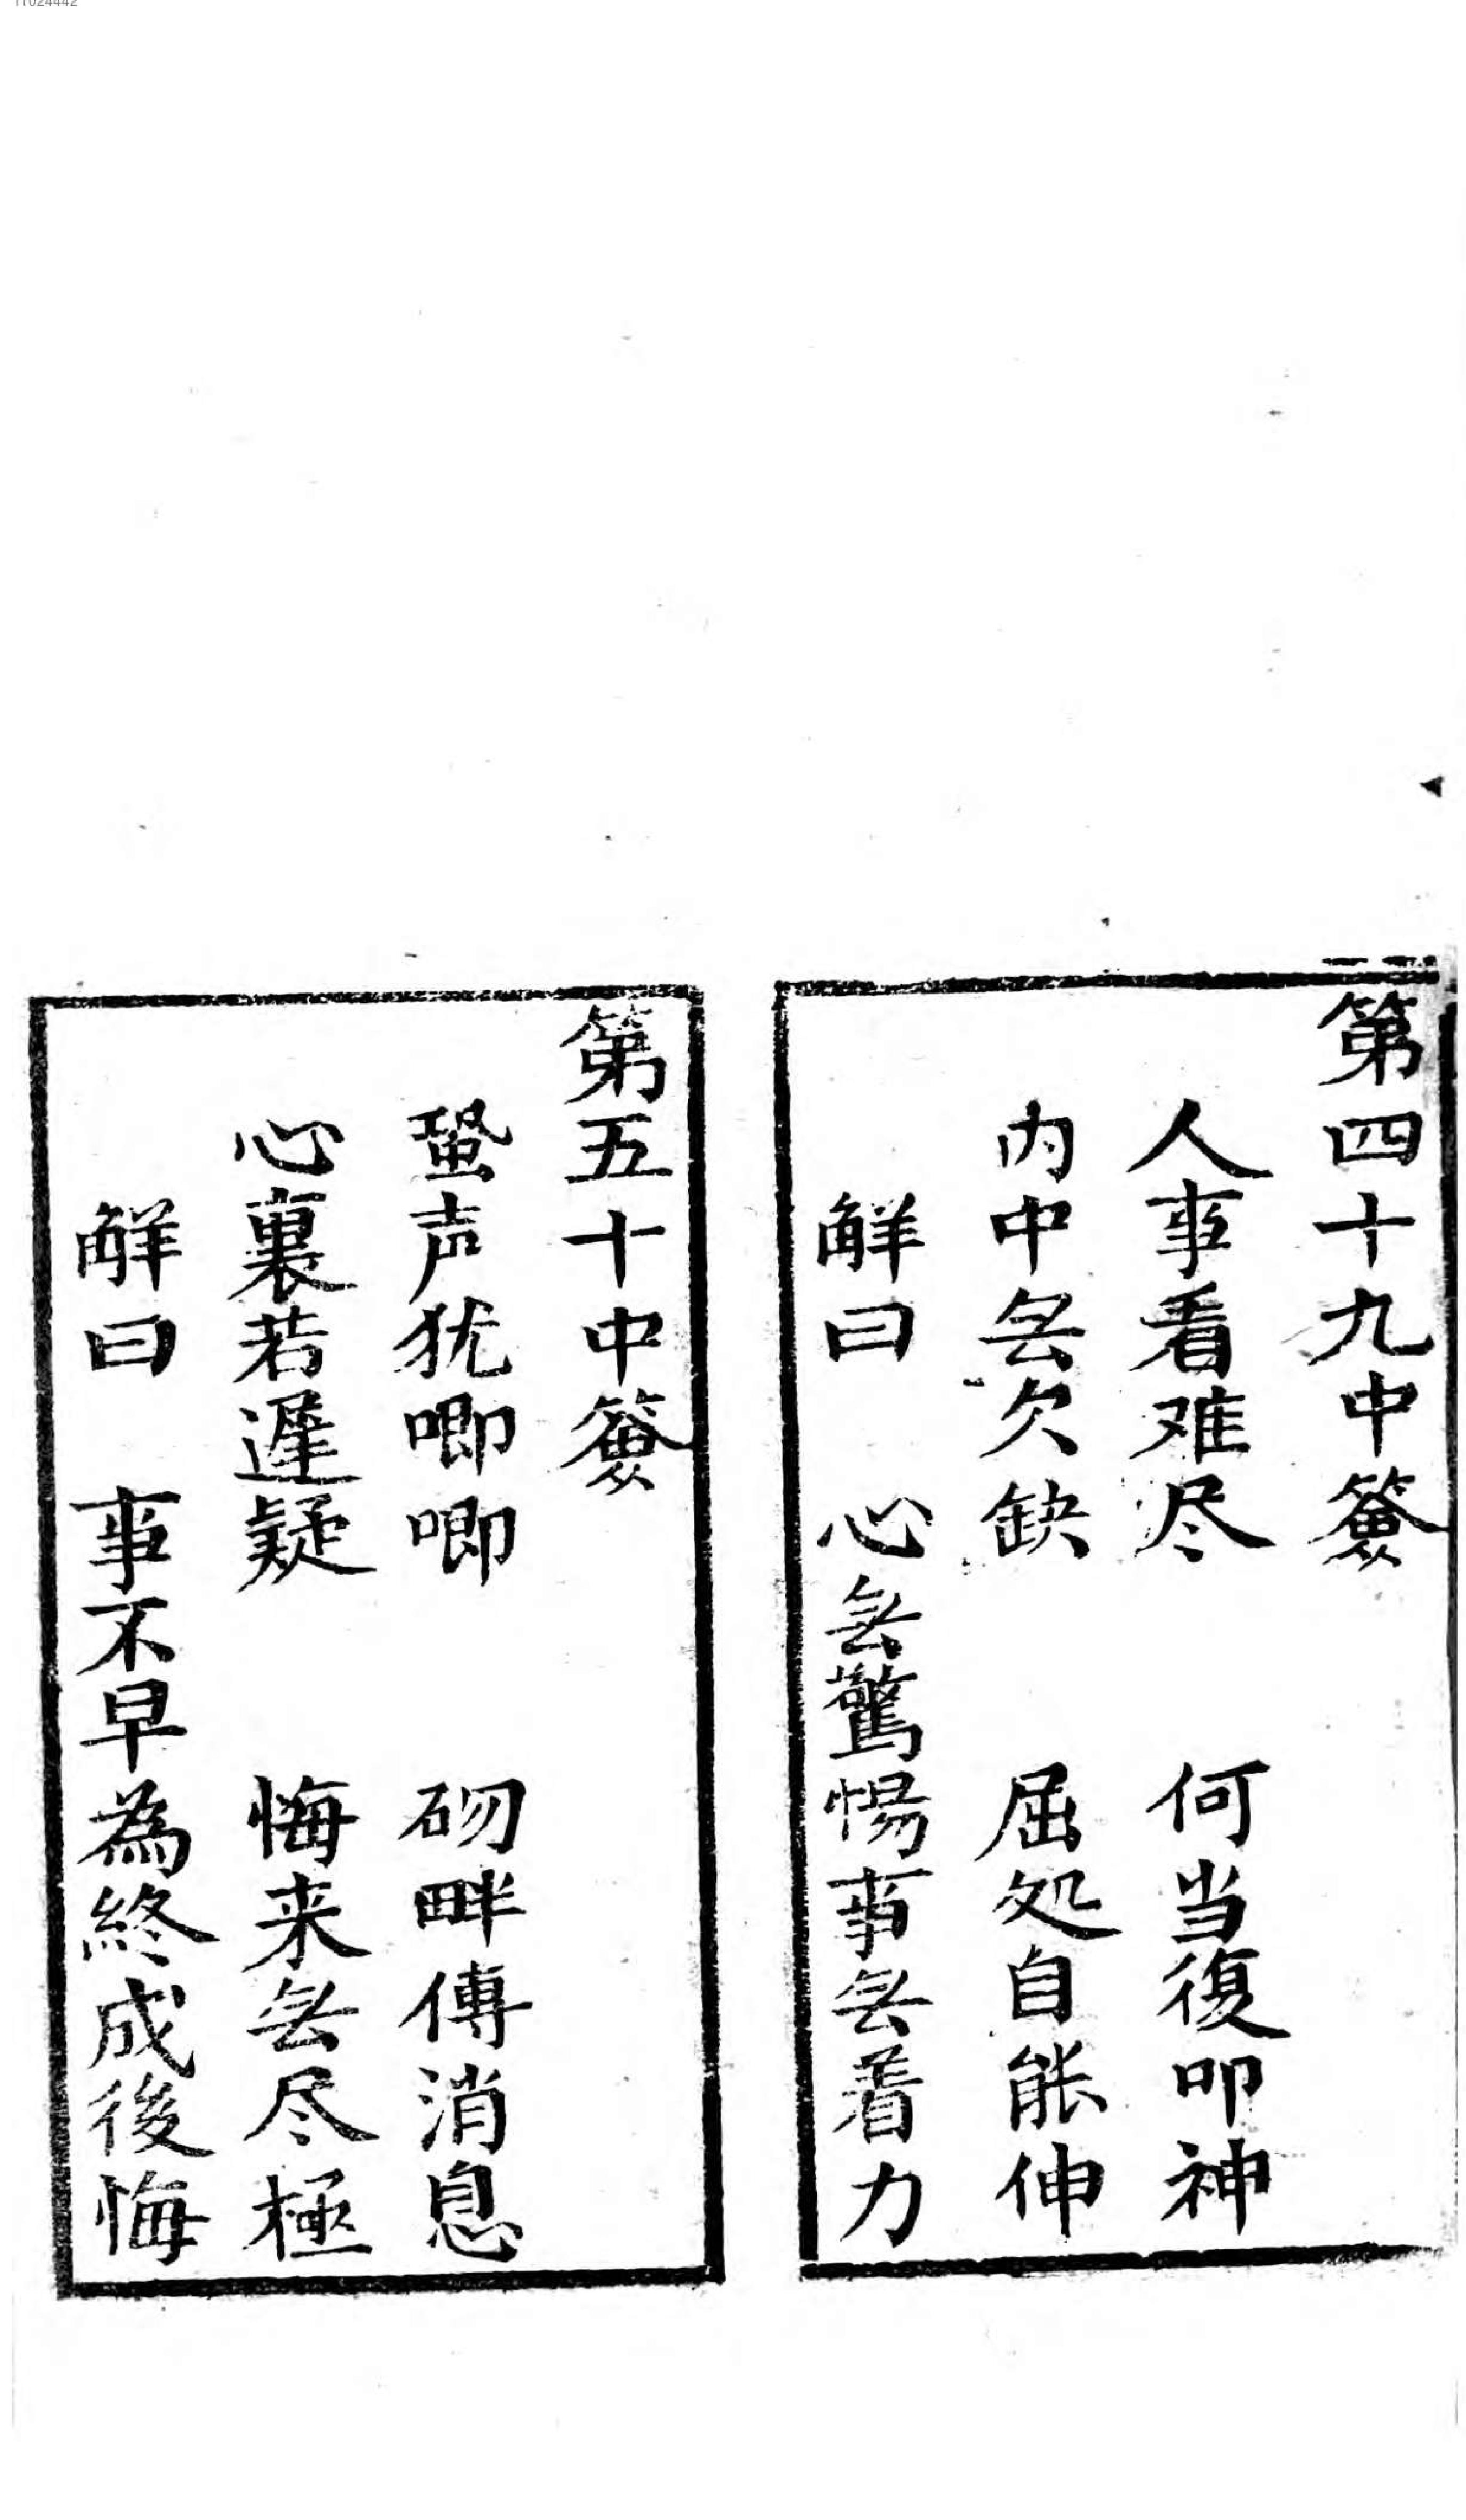 第四十九中簽
人事看难尽　何当復叩神
内中㒵欠缺　屈处自能伸
解曰　心无驚惕事无着力
第五十中簽
蛩声犹唧唧　砌畔傳消息
心裏若遲疑　悔来无尽極
解曰　事不早為終成後悔